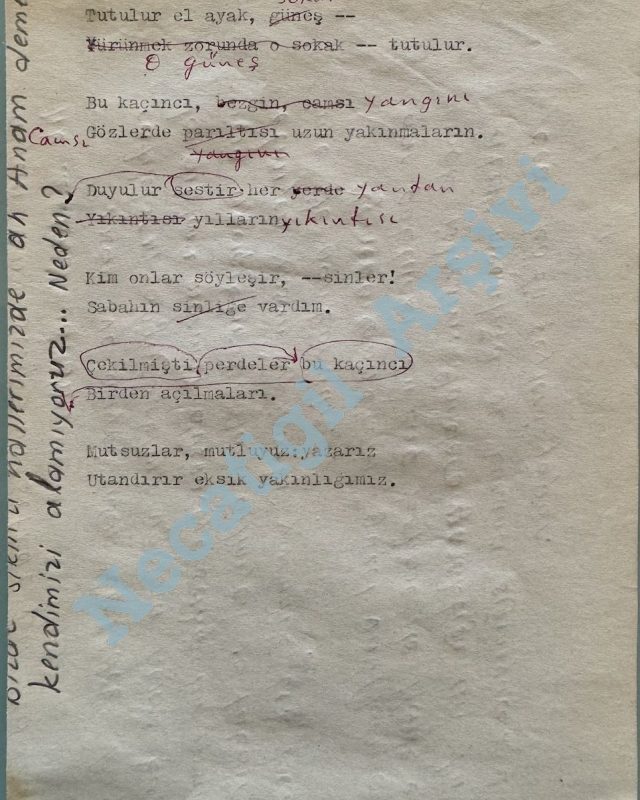 Tutulur el ayak, güneş --
Yürünmek zorunda o sokak -- tutulur.
O güneş
Bu kaçıncı, bezgin, camsı yangını
Camsı Gözlerde parıltısı uzun yakınmaların.
yangını
Duyulur sestir her yerde yandan
Yıkıntısı yılların yıkıntısı
Kim onlar söyleşir, --sinler!
Sabahın sinliğe vardım.
Çekilmişti perdeler bu kaçıncı
Birden açılmaları.
Mutsuzlar, mutluyuz:yazarız
Utandırır eksik yakınlığımız.
hallerimizde ah Anam deme
kendimizi alamıyoruz... Neden?
Necatigil Arşivi